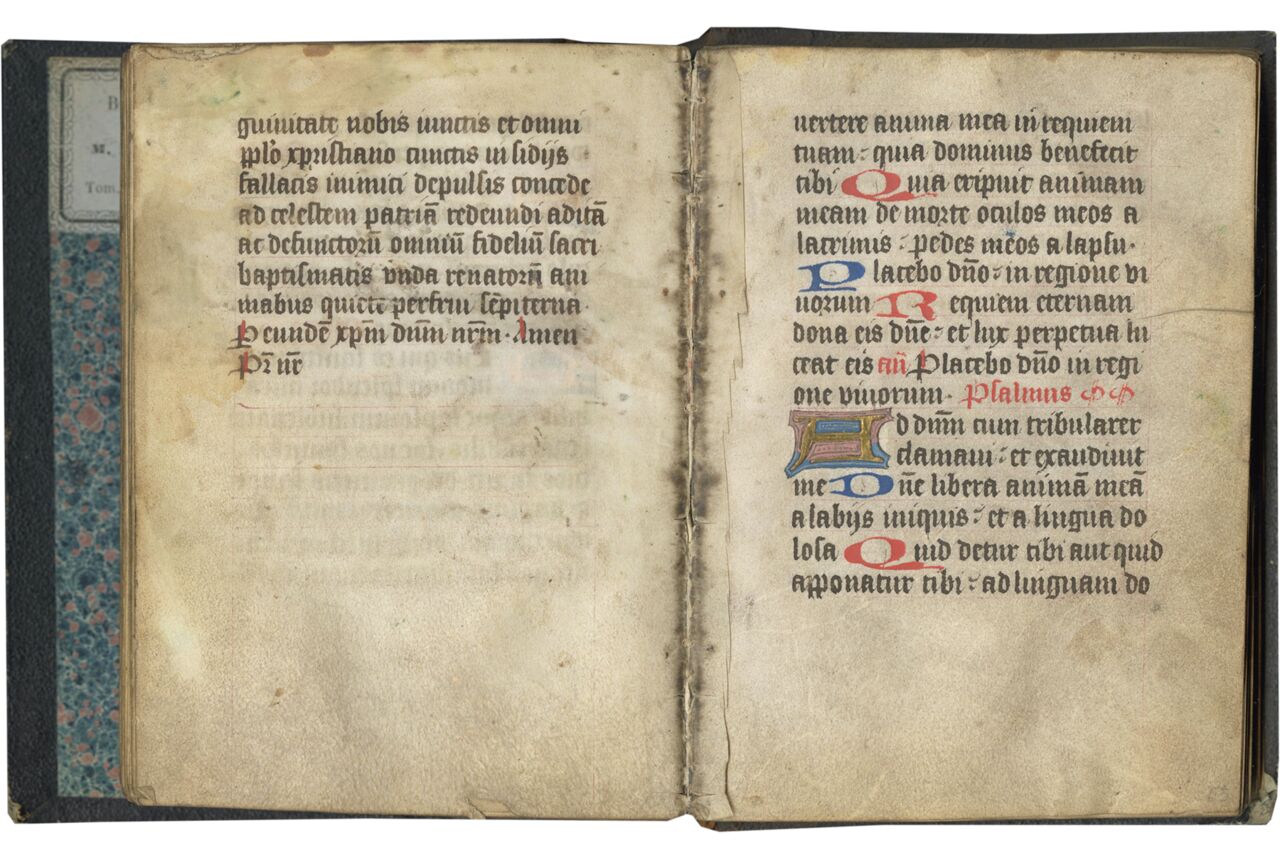 B
M.
Tom.
guinitate nobis iunctis et omni
pplo xpristiano cunctis insidijs
fallacis inimici depulsis concede
ad celestem patriā redeundi aditā
ac defunctorū omniū fideliū sacri
baptismatis vnda renatorū ani
mabus quietē perfrui sēpiterna·
P eundē xp̄m dn̄m nr̄m· Amen
Pr̄ nr̄
uertere anima mea in requiem
tuam : quia dominus benefecit
tibi Quia eripuit animam
meam de morte oculos meos a
lacrimis : pedes meos a lapsu·
Placebo dn̄o : in regione vi
uorum Requiem eternam
dona eis dn̄e : et lux perpetua lu
ceat eis an̄ Placebo dn̄o in regi
one viuorum· Psalmus
Ad dn̄m cum tribularer
clamaui : et exaudiuit
me Dn̄e libera animā meā
a labijs iniquis : et a lingua do
losa Quid detur tibi aut quid
apponatur tibi : ad linguam do